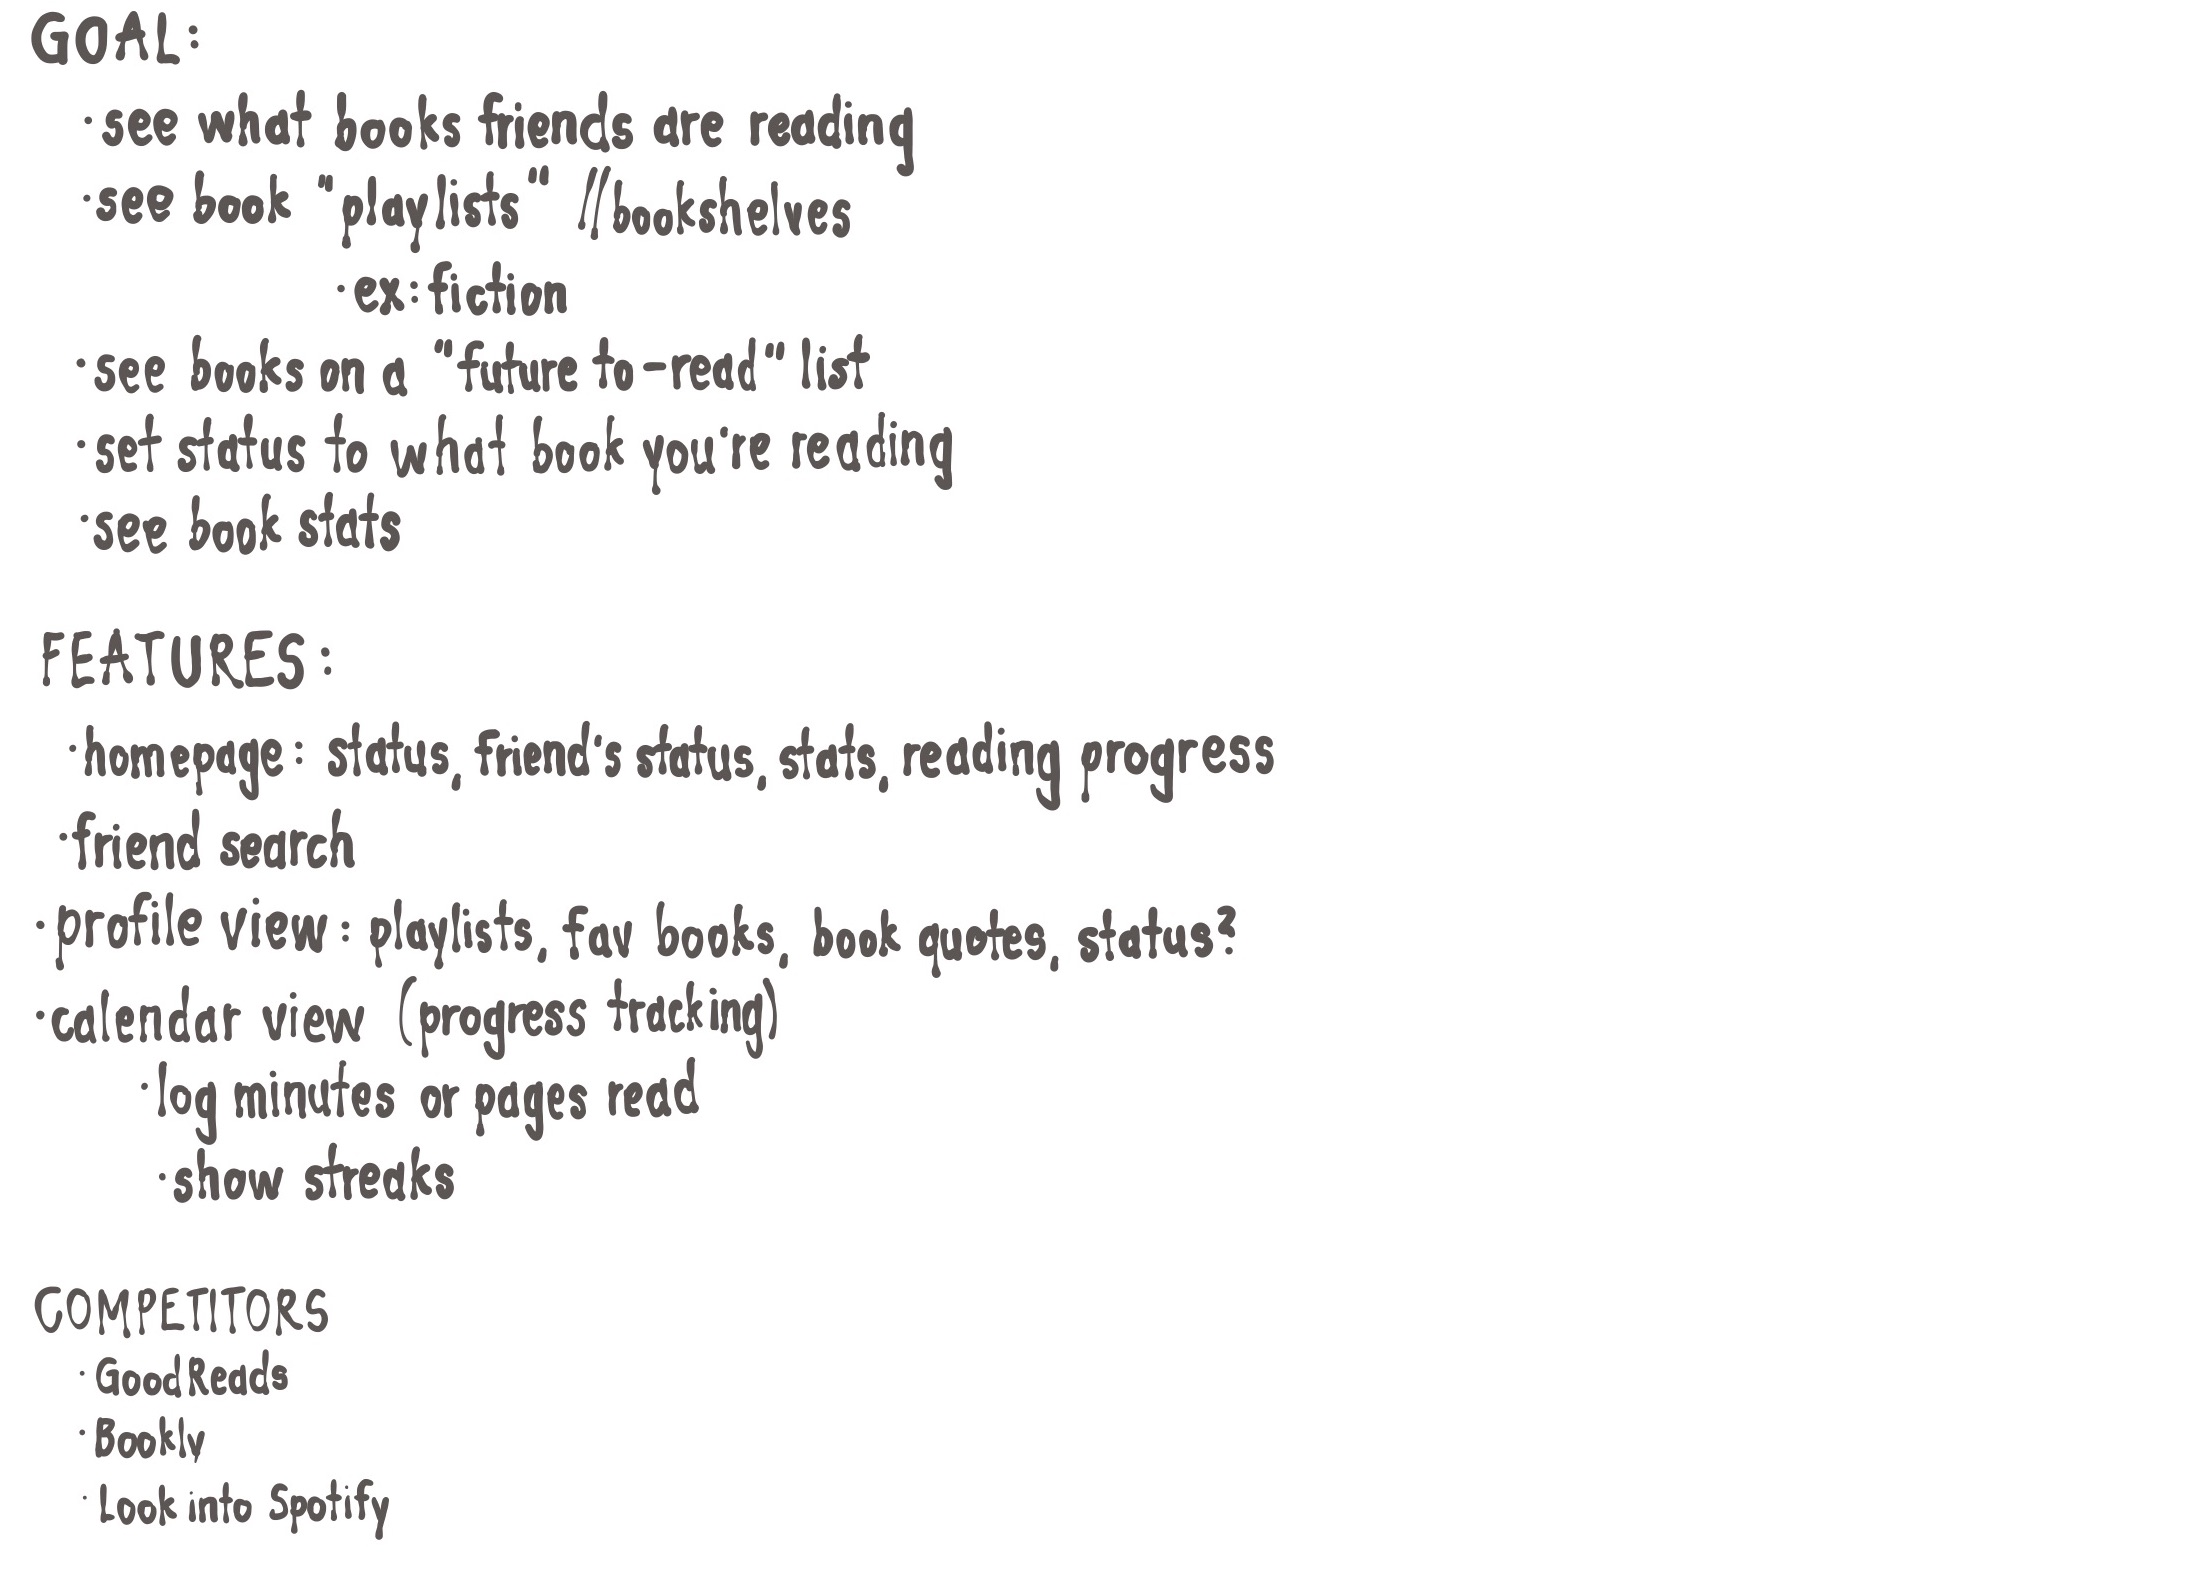 GOAL:
·see what books friends are reading
·see book "playlists" //bookshelves
·ex: fiction
·see books on a "future to-read" list
·set status to what book you're reading
·see book stats
FEATURES:
·homepage: status, friend's status, stats, reading progress
·friend search
·profile view: playlists, fav books, book quotes, status?
·calendar view (progress tracking)
·log minutes or pages read
·show streaks
COMPETITORS
·GoodReads
·Bookly
·Look into Spotify